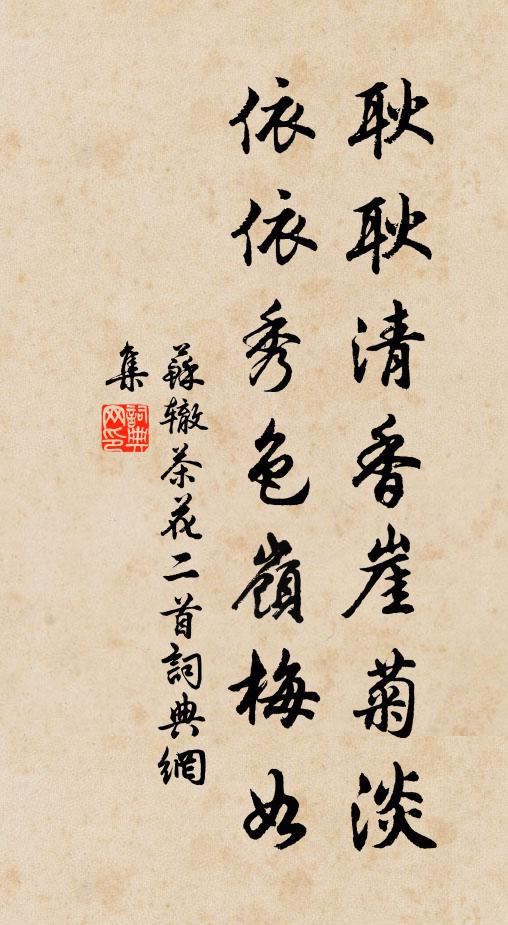 耿耿清香崖菊淡
依依秀色嶺梅如
蘇辙茶花二首詞典網
集
詞典
网印